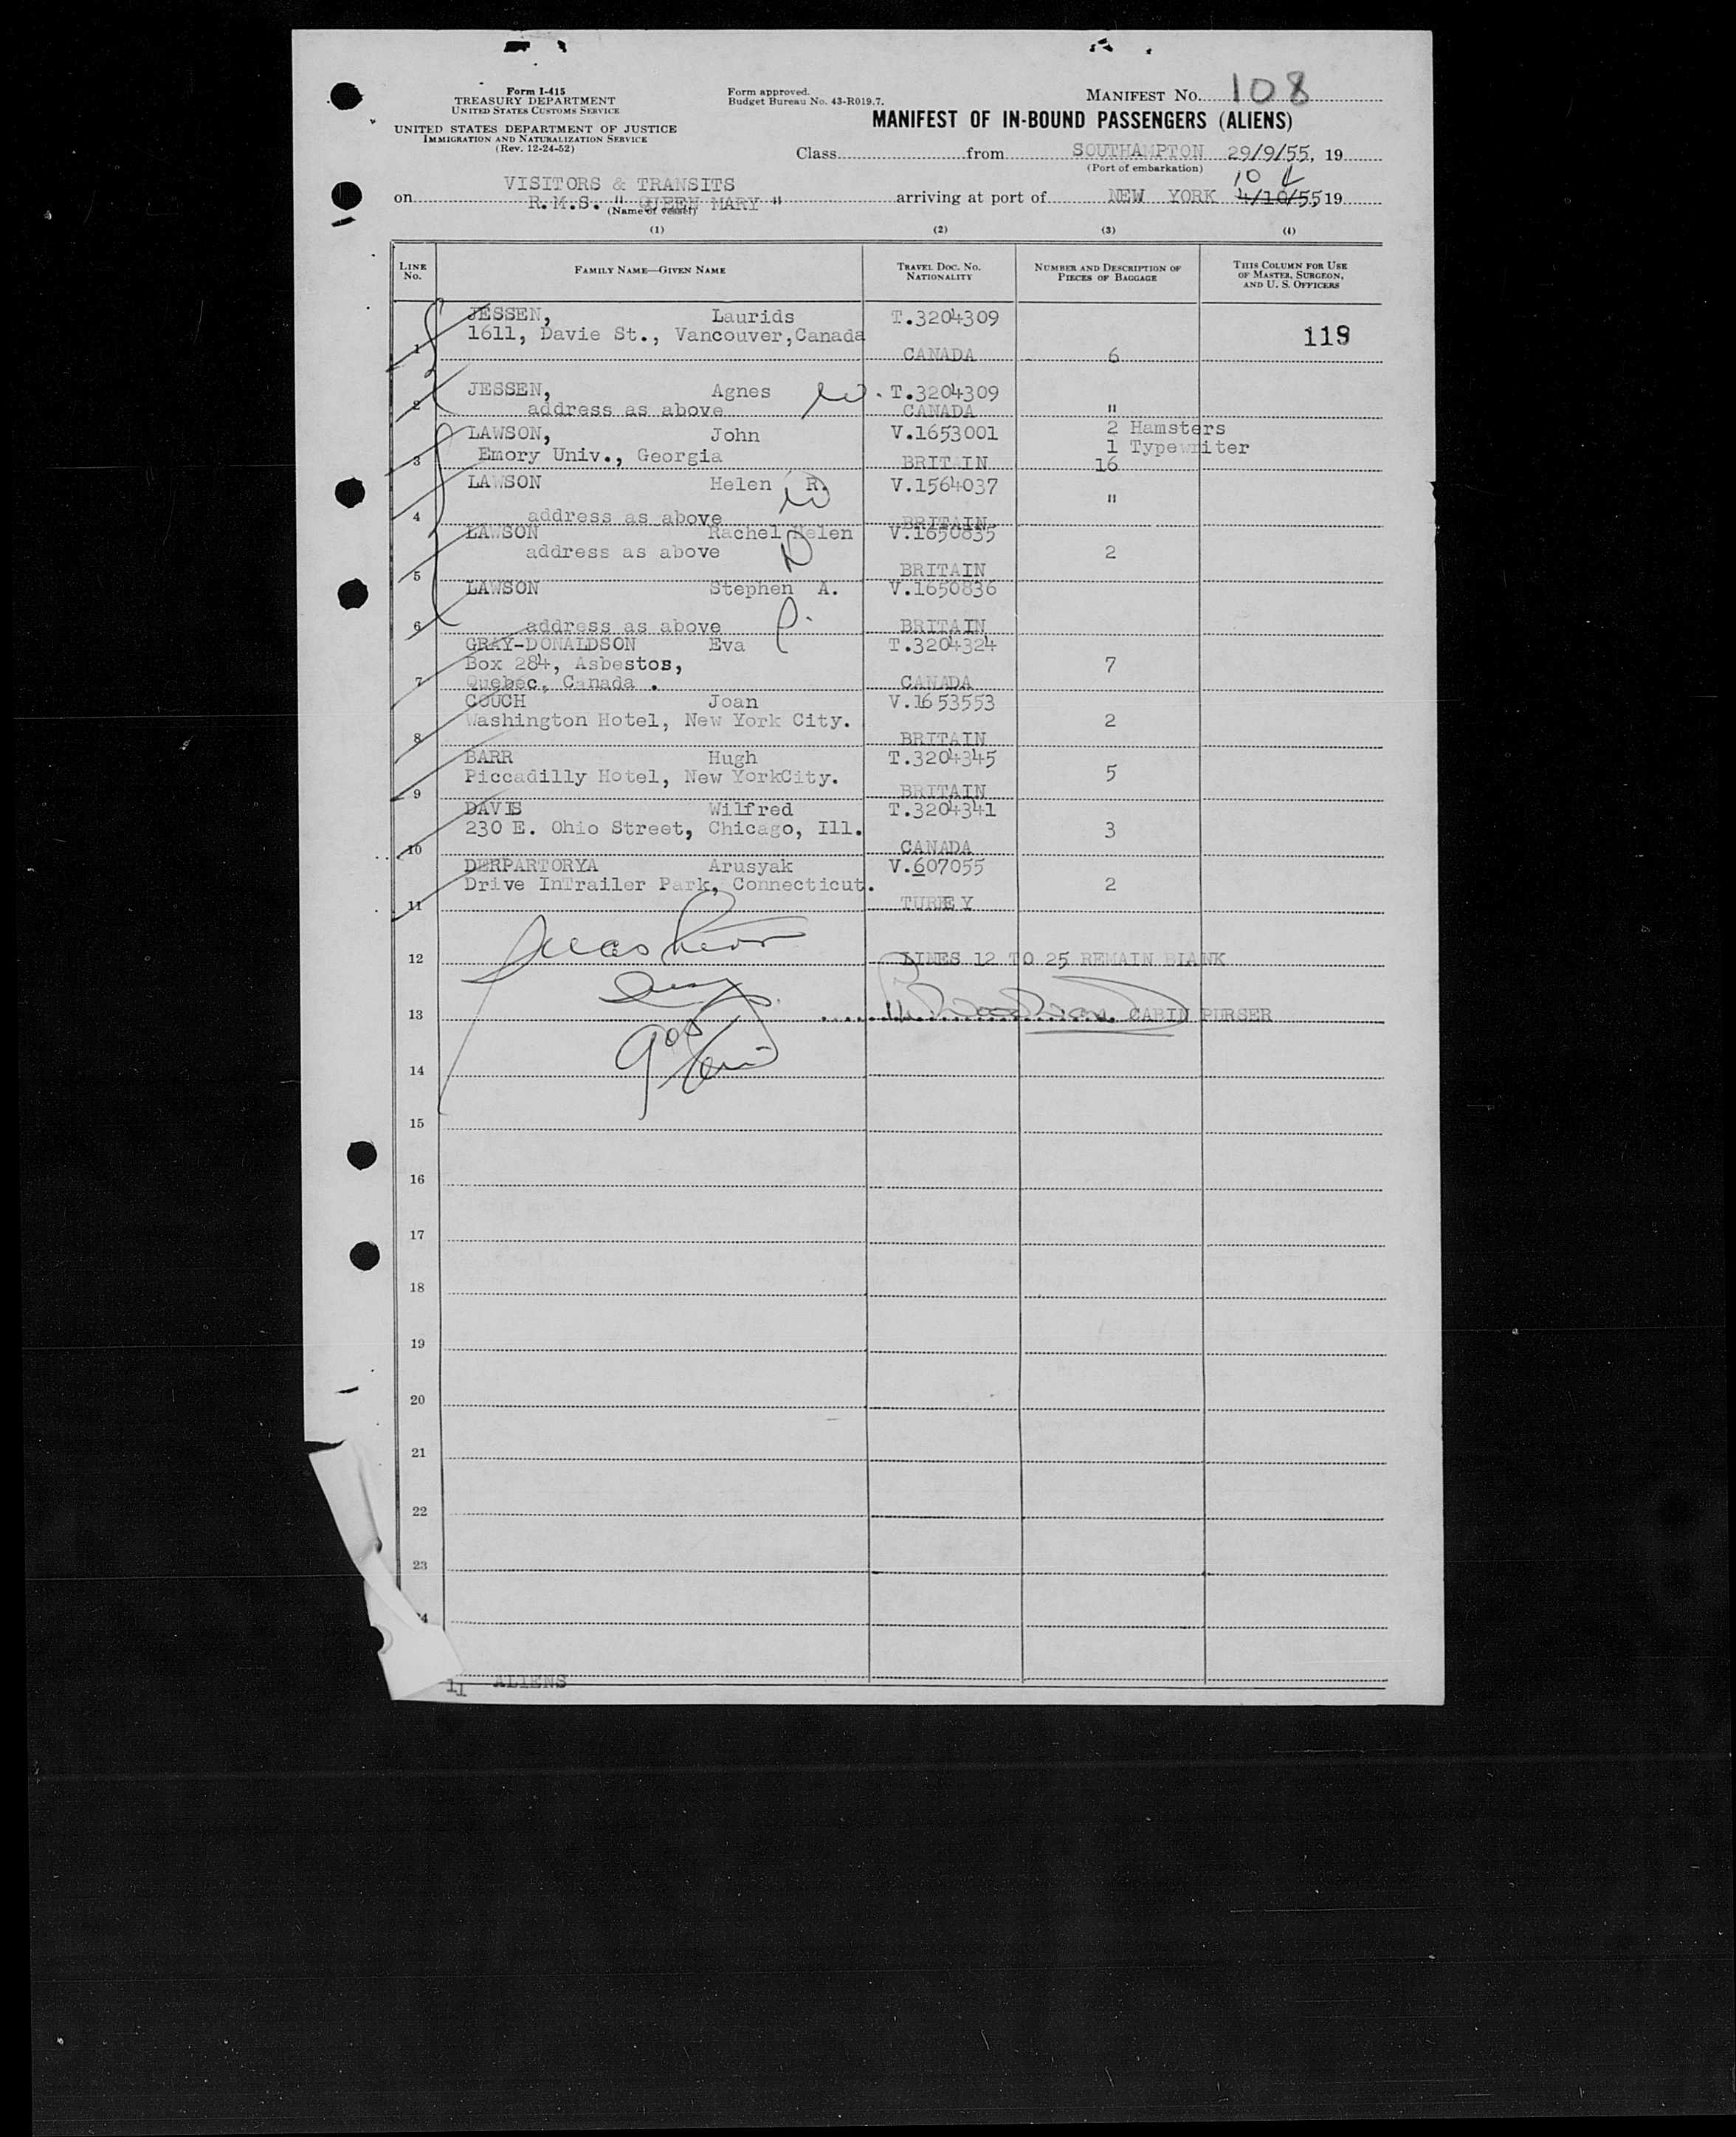 Form I-415
TREASURY DEPARTMENT
UNITED STATES CUSTOMS SERVICE
UNITED STATES DEPARTMENT OF JUSTICE
IMMIGRATION AND NATURALIZATION SERVICE
(Rev. 12-24-52)
Form approved.
Budget Bureau No. 43-R019.7.
MANIFEST NO. 108
MANIFEST OF IN-BOUND PASSENGERS (ALIENS)
Class from SOUTHAMPTON 29/9/55, 19
(Port of embarkation)
VISITORS & TRANSITS
10 4
on R.M.S. " QUEEN MARY " arriving at port of NEW YORK 4/10/55 19
(Name of vessel)
(1) (2) (3) (4)
LINE No. FAMILY NAME—GIVEN NAME TRAVEL DOC. NO. NATIONALITY NUMBER AND DESCRIPTION OF PIECES OF BAGGAGE THIS COLUMN FOR USE OF MASTER, SURGEON, AND U. S. OFFICERS
JESSEN, Laurids T.3204309
1611, Davie St., Vancouver,Canada 119
1 CANADA 6
JESSEN, Agnes W. T.3204309
2 address as above CANADA "
LAWSON, John V.1653001 2 Hamsters
1 Typewriter
3 Emory Univ., Georgia BRITAIN 16
LAWSON Helen R. V.1564037 "
W
4 address as above BRITAIN
LAWSON Rachel Helen V.1650835
address as above D 2
5 BRITAIN
LAWSON Stephen A. V.1650836
6 address as above BRITAIN
GRAY-DONALDSON Eva T.3204324
Box 284, Asbestos, 7
7 Quebec, Canada . CANADA
COUCH Joan V.1653553
Washington Hotel, New York City. 2
8 BRITAIN
BARR Hugh T.3204345
Piccadilly Hotel, New YorkCity. 5
9 BRITAIN
DAVIS Wilfred T.3204341
230 E. Ohio Street, Chicago, Ill. 3
10 CANADA
DERPARTORYA Arusyak V.607055
Drive InTrailer Park, Connecticut. 2
11 TURKEY
12 LINES 12 TO 25 REMAIN BLANK
13 CABIN PURSER
14
15
16
17
18
19
20
21
22
23
24
11 ALIENS